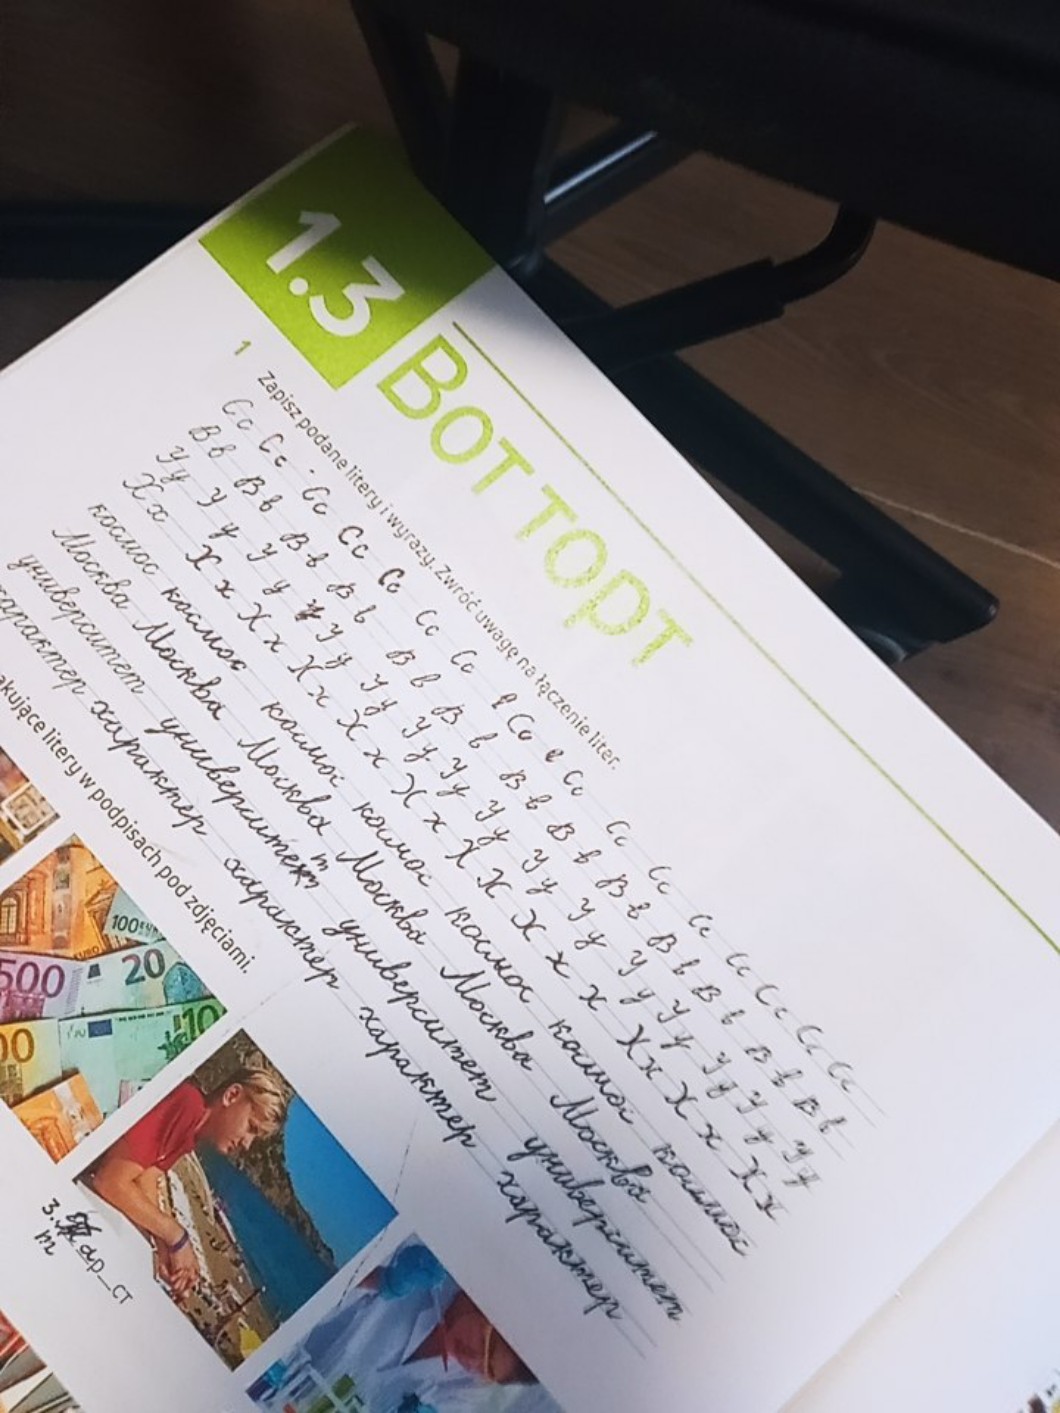 1.3 Вот торт
1 Zapisz podane litery i wyrazy. Zwróć uwagę na łączenie liter.
Сс Сс Сс Сс Сс Сс Сс Сс Сс Сс Сс Сс Сс Сс Сс
Вв Вв Вв Вв Вв Вв Вв Вв Вв Вв Вв Вв Вв
Уу Уу Уу Уу Уу Уу Уу Уу Уу Уу Уу Уу Уу Уу
Хх Хх Хх Хх Хх Хх Хх Хх Хх Хх Хх Хх
космос космос космос космос космос космос космос
Москва Москва Москва Москва Москва Москва
университет университет университет университет
характер характер характер характер характер
litery w podpisach pod zdjęciami.
100
500 20
10
3. ар_ст
т